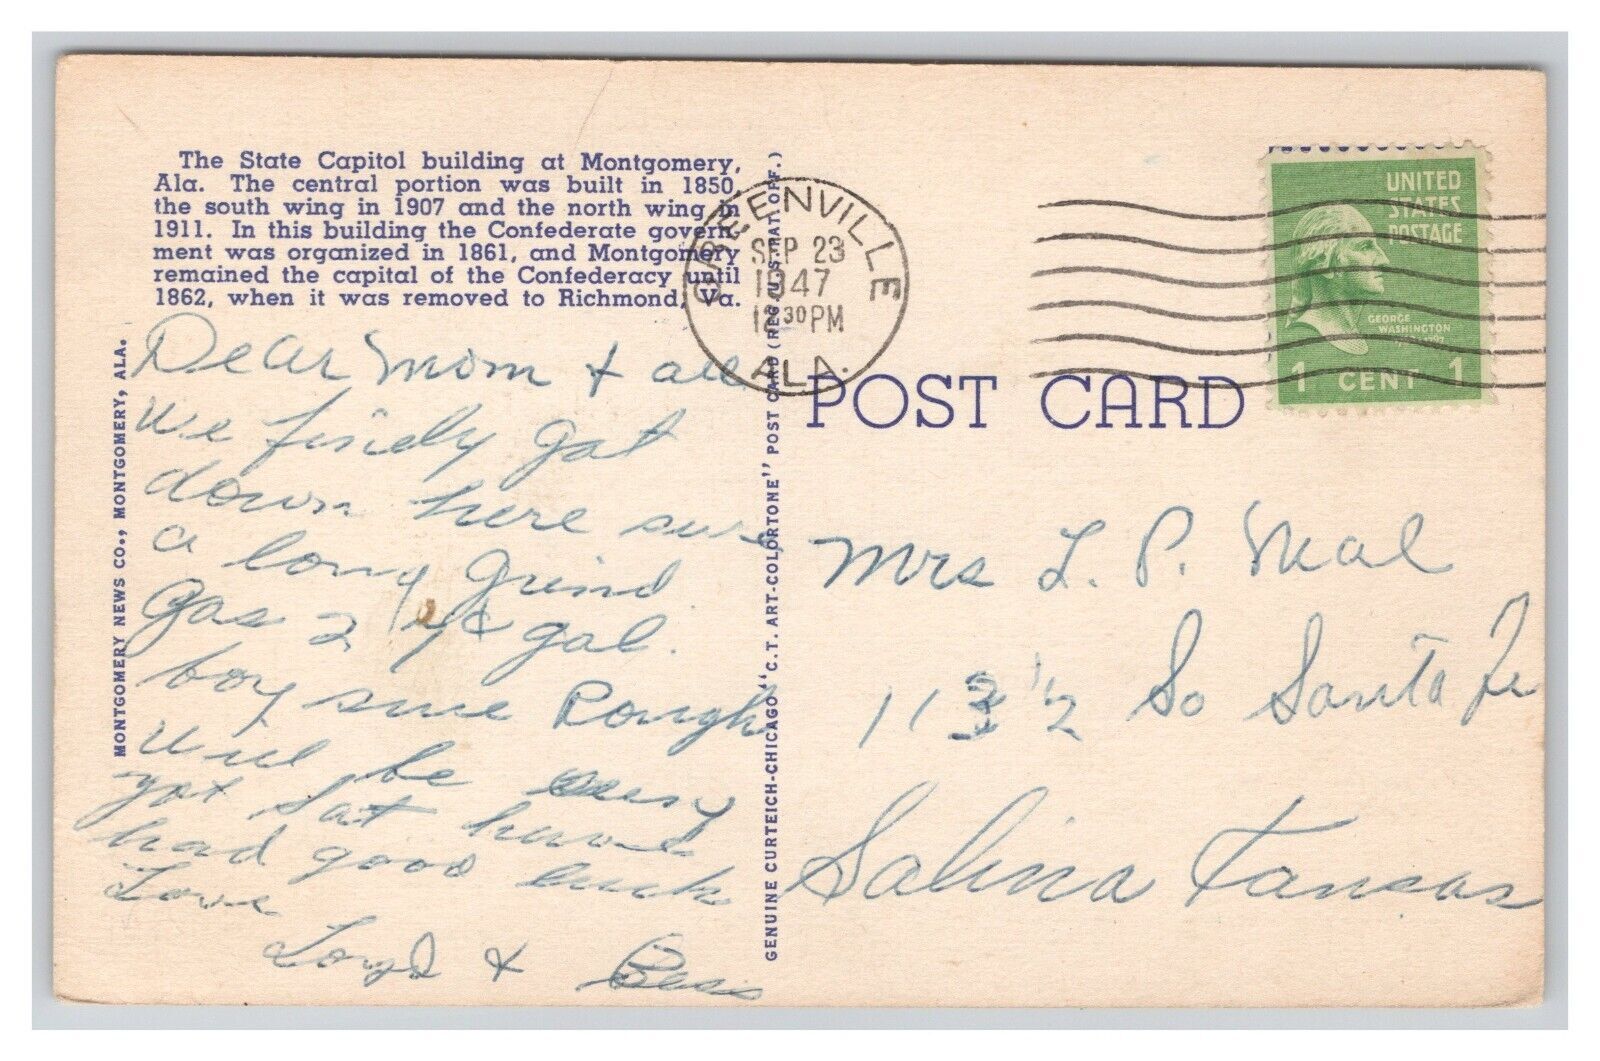 The State Capitol building at Montgomery,
Ala. The central portion was built in 1850,
the south wing in 1907 and the north wing in
1911. In this building the Confederate govern-
ment was organized in 1861, and Montgomery
remained the capital of the Confederacy until
1862, when it was removed to Richmond, Va.
MONTGOMERY NEWS CO., MONTGOMERY, ALA.
Dear Mom & all
We finely got
down here sure
a long grind
Gas 24¢ gal.
boy sure Rough
will be
yet Sat
had good luck
Love
Loyd & Bess
GENUINE CURTEICH-CHICAGO "C.T. ART-COLORTONE" POST CARD (REG. U.S. PAT. OFF.)
GREENVILLE
SEP 23
1947
12 30 PM
ALA.
POST CARD
UNITED
STATES
POSTAGE
GEORGE
WASHINGTON
1 CENT 1
Mrs L. P. Neal
113 1/2 So Santa Fe
Salina Kansas